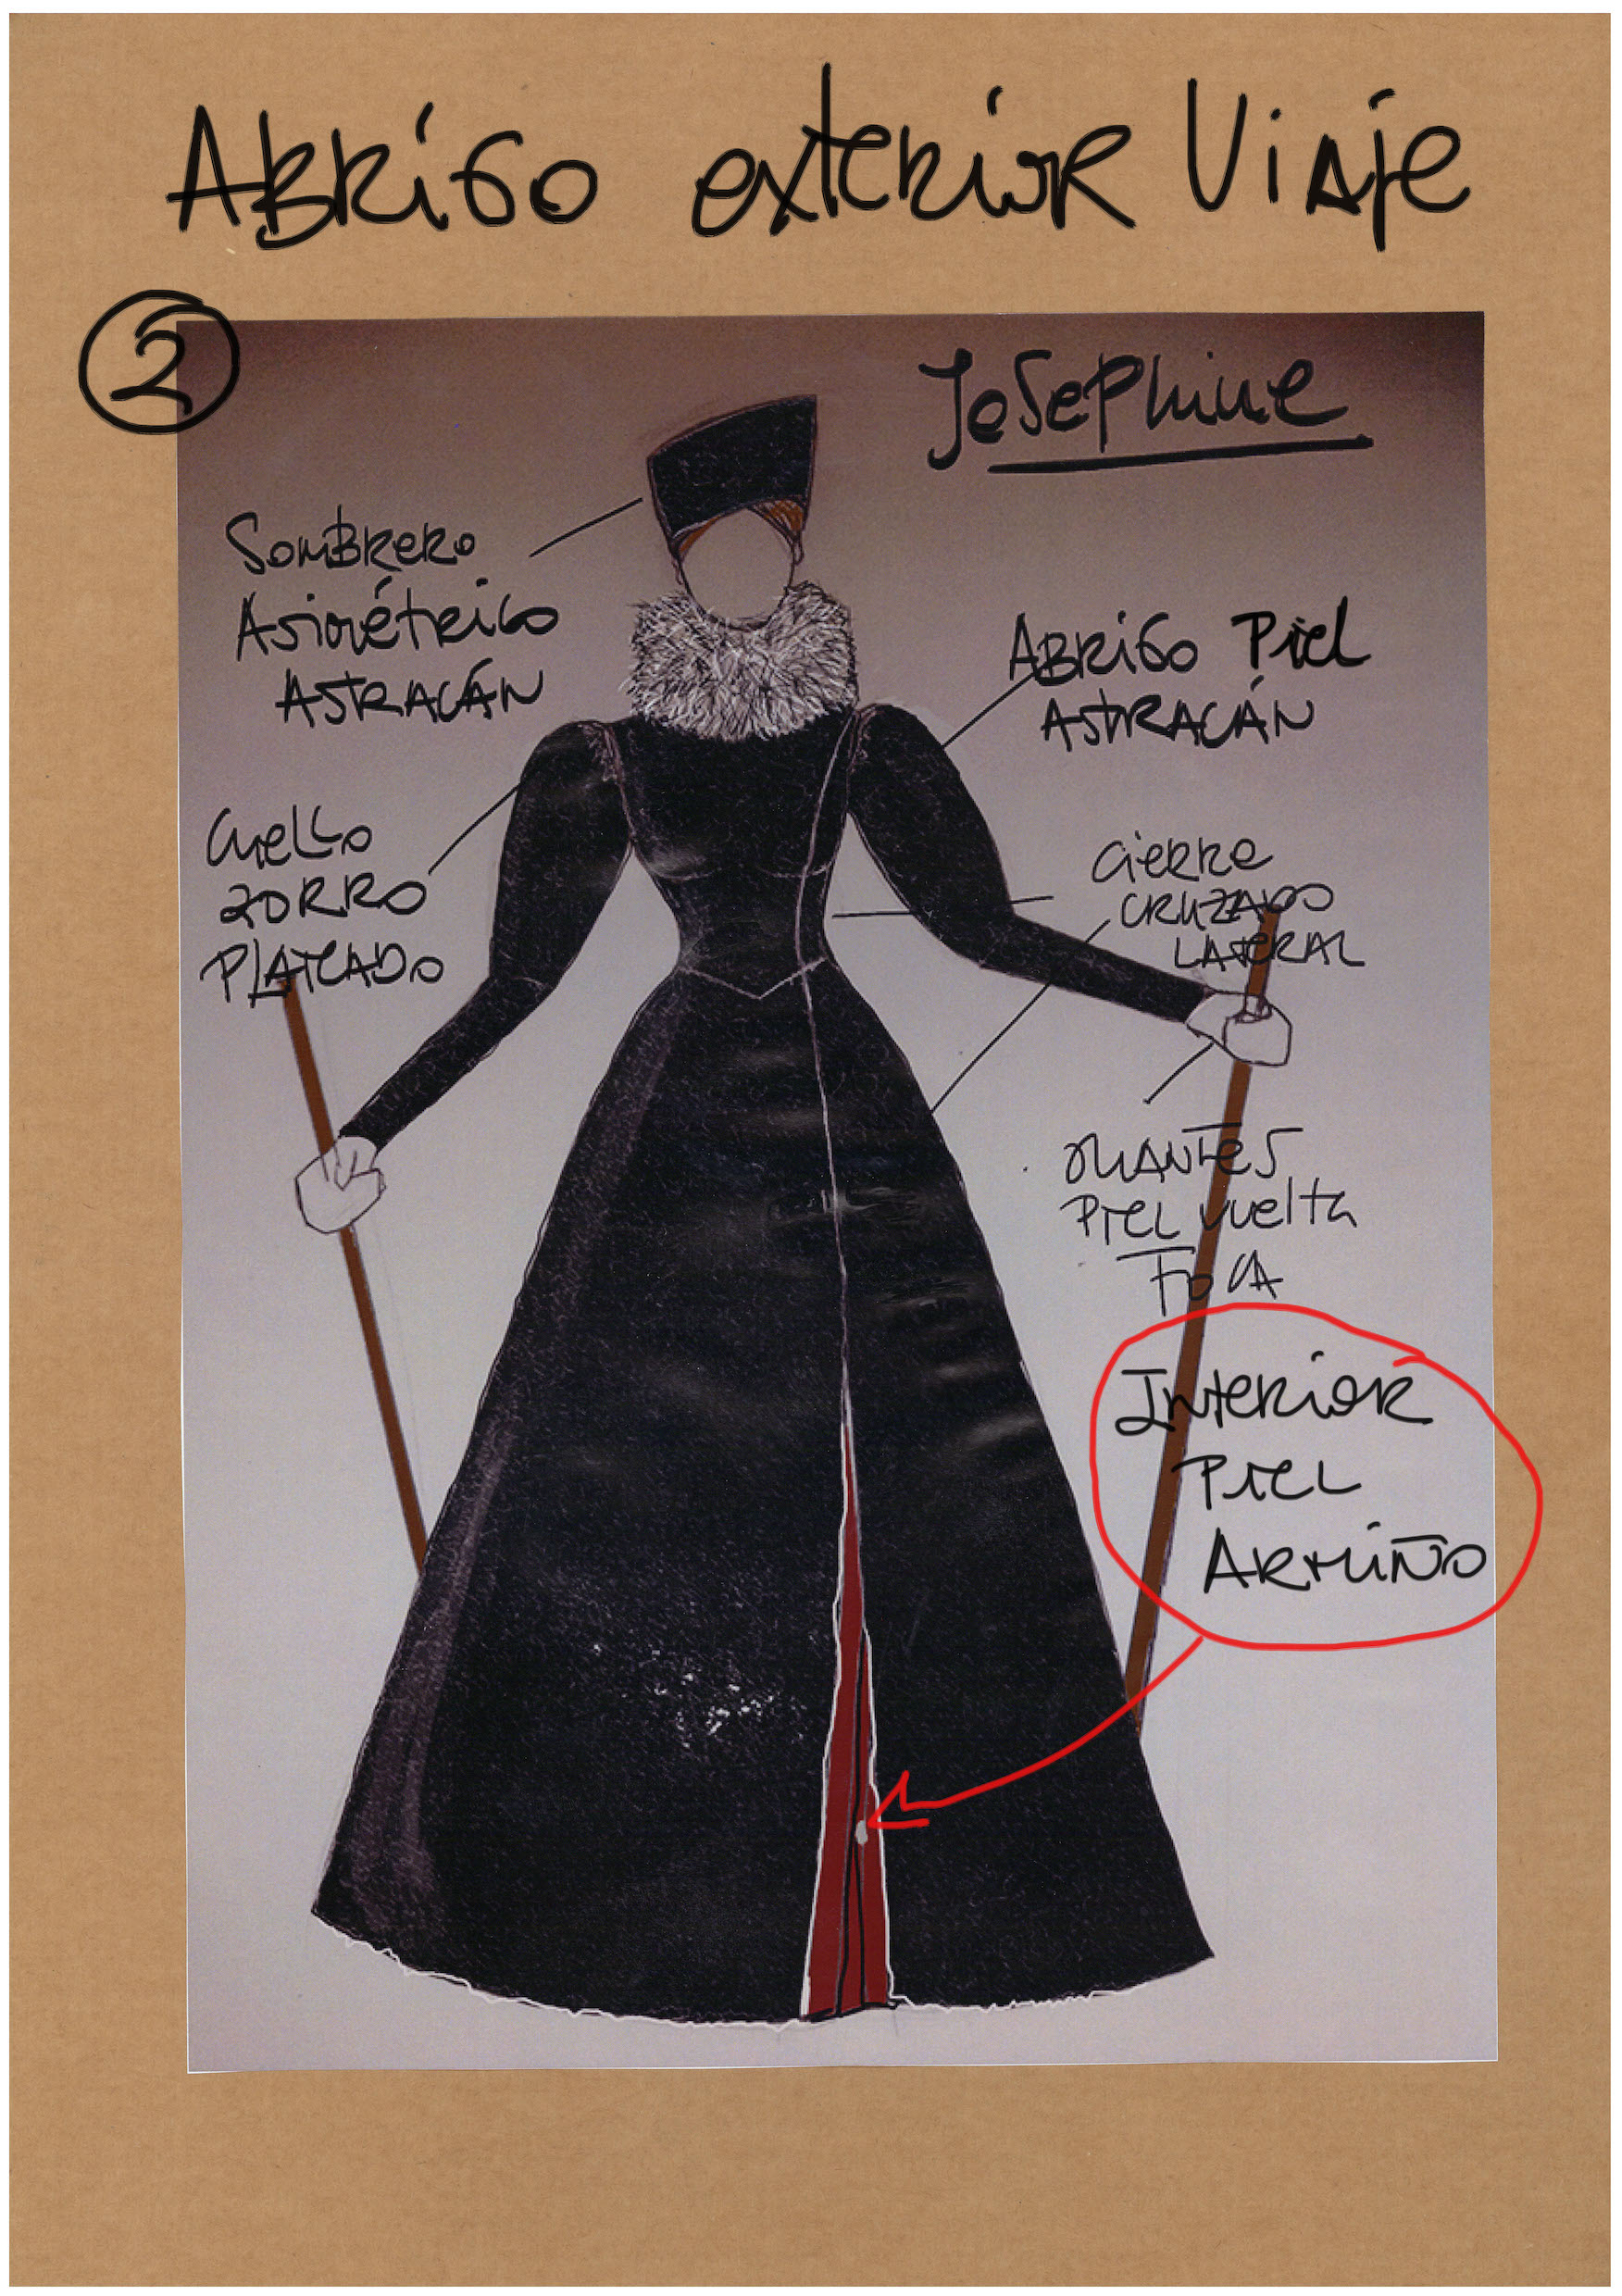 ABRIGO exterior Viaje
2
Josephine
Sombrero
Asimétrico
ASTRACÁN
ABRIGO Piel
ASTRACÁN
Cuello
ZORRO
PLATEADO
cierre
CRUZADO
LATERAL
MANTES
PIEL vuelta
FOCA
Interior
PIEL
ARMIÑO